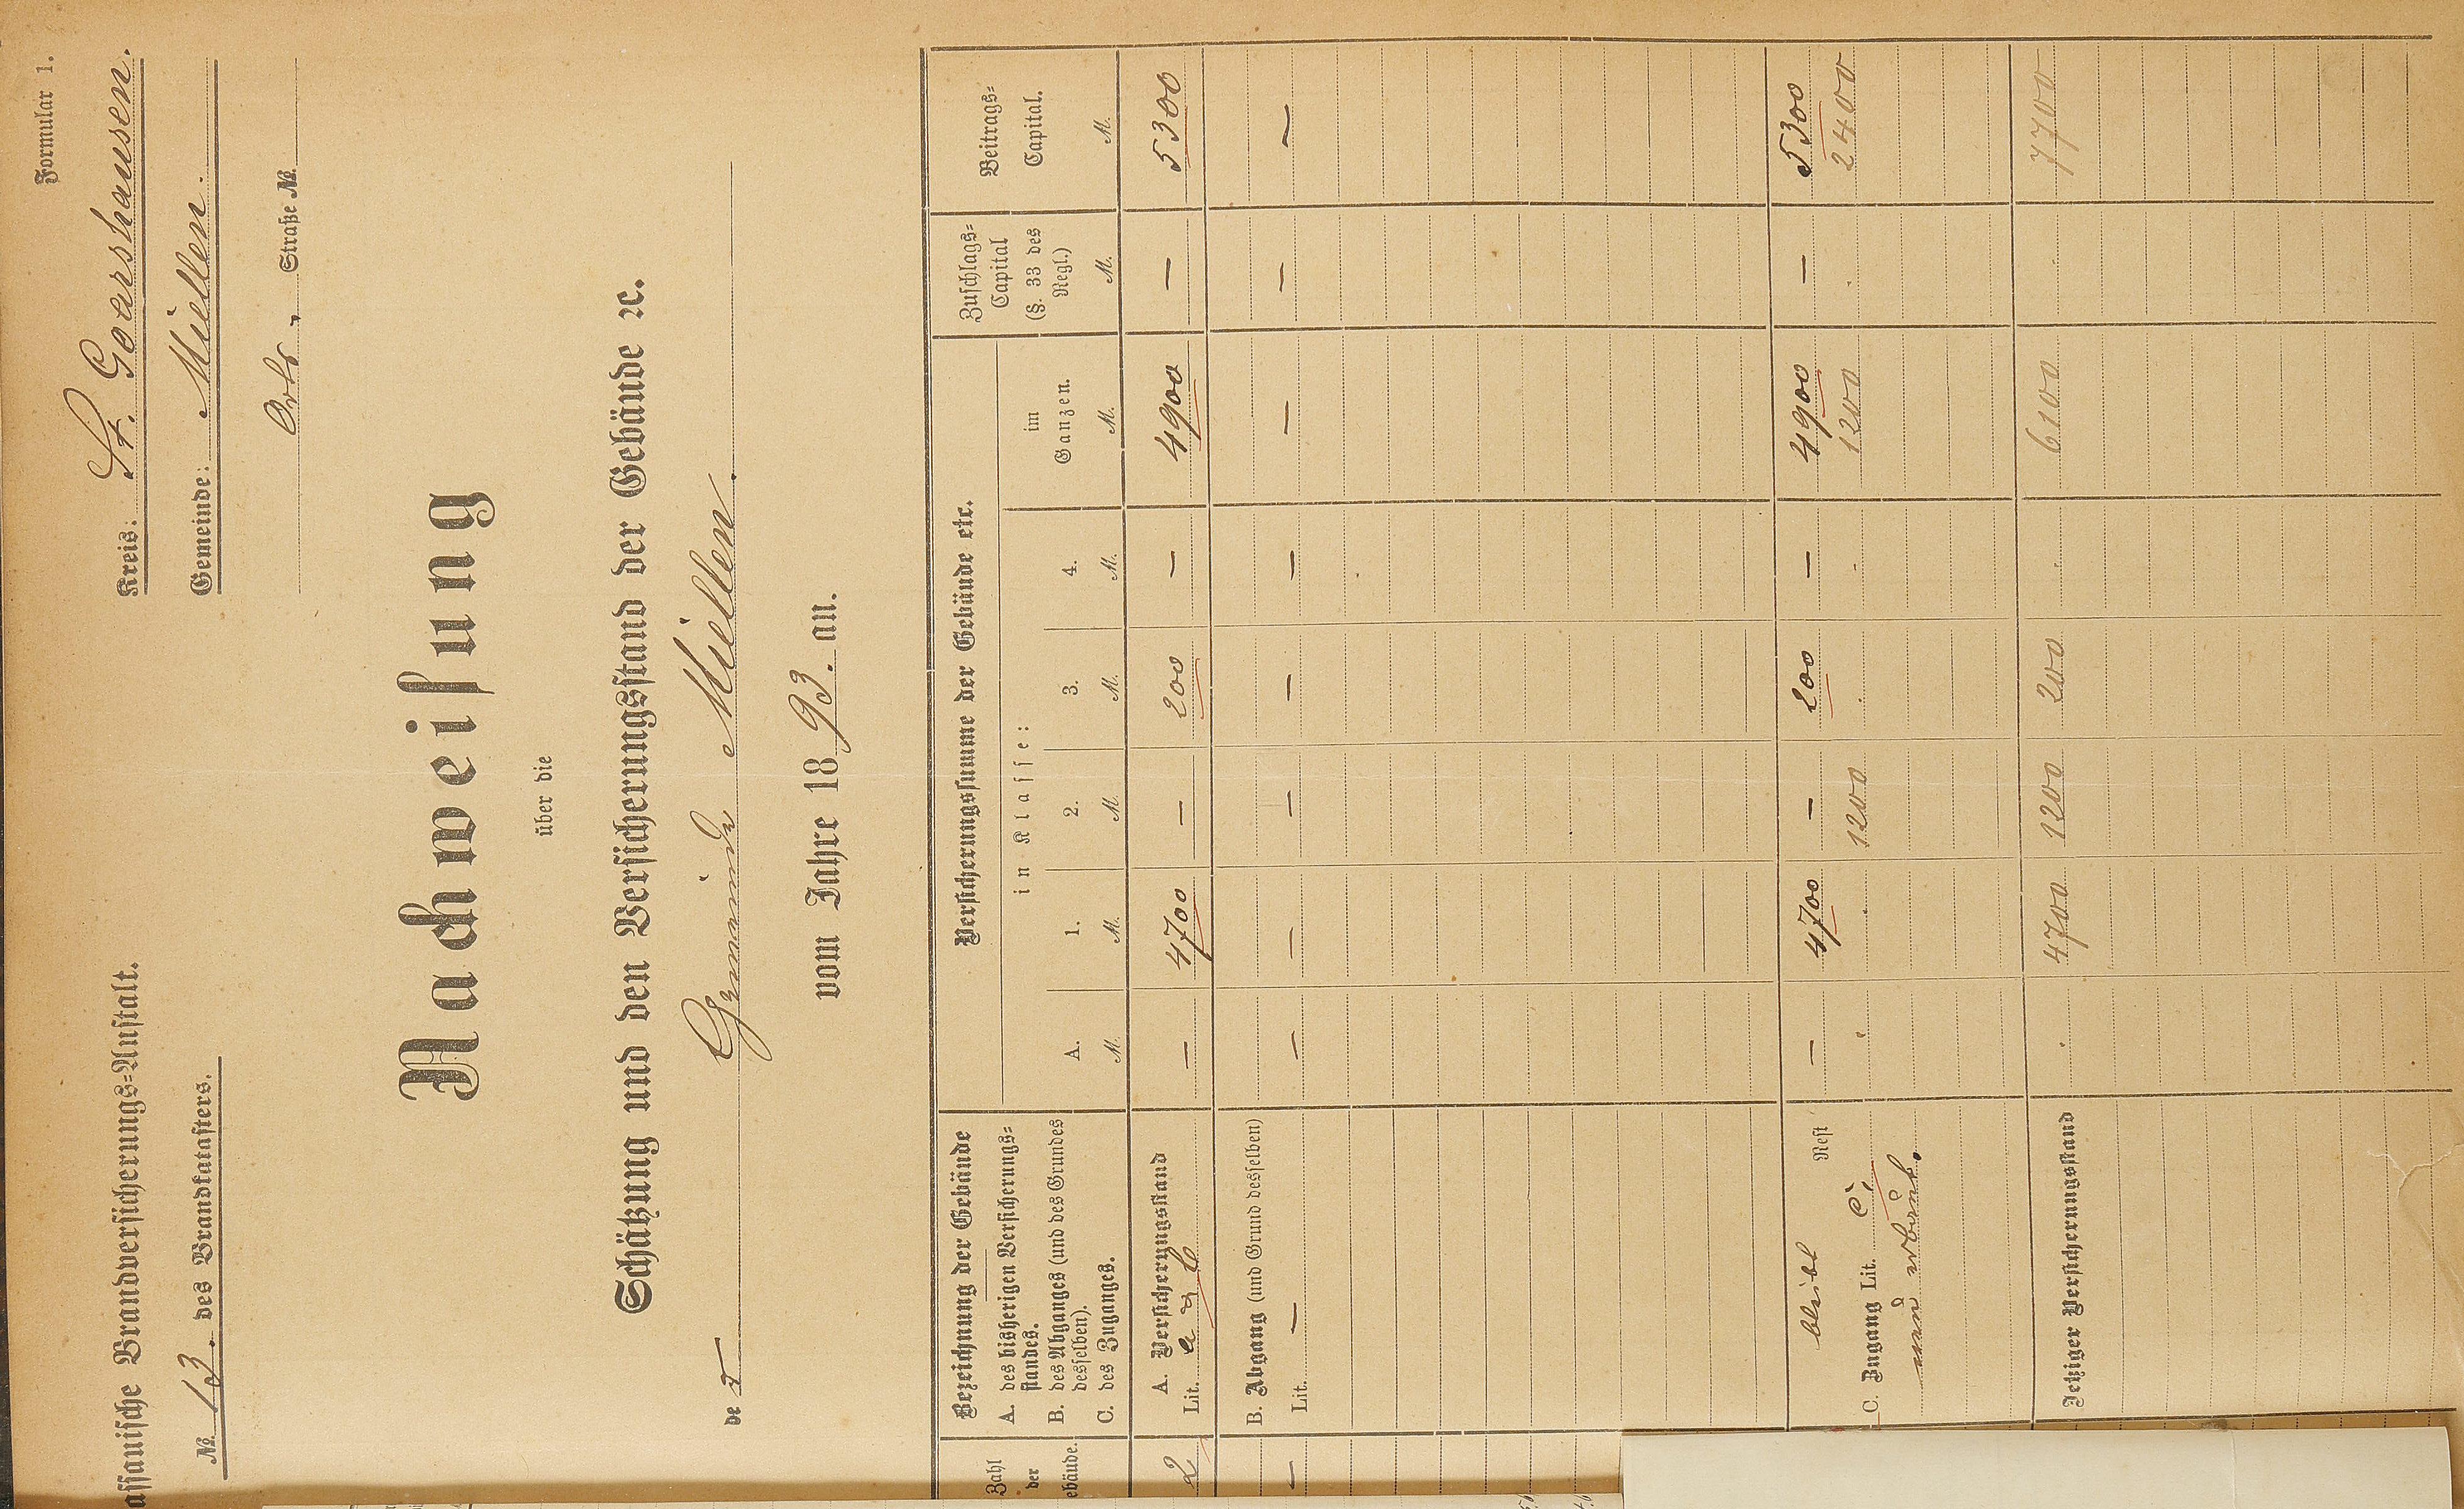 Formular 1.
assauische Brandversicherungs=Anstalt.
Kreis: St. Goarshausen.
№ 13. des Brandkatasters.
Gemeinde: Miellen.
Orts, Straße №
Nachweisung
über die
Schätzung und den Versicherungsstand der Gebäude ꝛc.
der Gemeinde Miellen.
vom Jahre 1893. an.
Zahl der ebäude.
Bezeichnung der Gebäude
A. des bisherigen Versicherungs=
standes.
B. des Abganges (und des Grundes
desselben).
C. des Zuganges.
Versicherungssumme der Gebäude etc.
in Klasse:
A. 1. 2. 3. 4.
im Ganzen.
M. M. M. M. M. M.
Zuschlags=
Capital
(§. 33 des
Regl.)
M.
Beitrags=
Capital.
M.
A. Versicherungsstand
2 Lit. a & b — 4700 — 200 — 4900 — 5300
B. Abgang (und Grund desselben)
— Lit. — — — — — — — — —
bleibt Rest — 4700 — 200 — 4900 — 5300
C. Zugang Lit. c, . . 1200 . . 1200 . 2400
neu erbaut.
Jetziger Versicherungsstand . 4700 1200 200 . 6100 . 7700